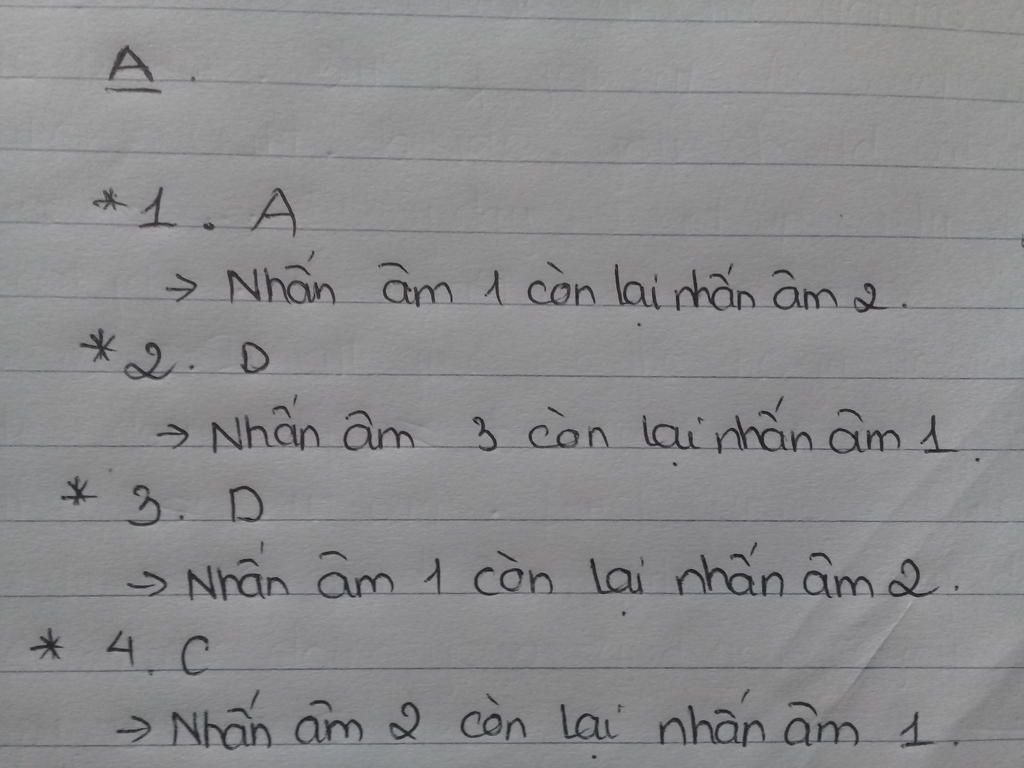 A.
* 1. A
→ Nhấn âm 1 còn lại nhấn âm 2.
* 2. D
→ Nhấn âm 3 còn lại nhấn âm 1.
* 3. D
→ Nhấn âm 1 còn lại nhấn âm 2.
* 4. C
→ Nhấn âm 2 còn lại nhấn âm 1.